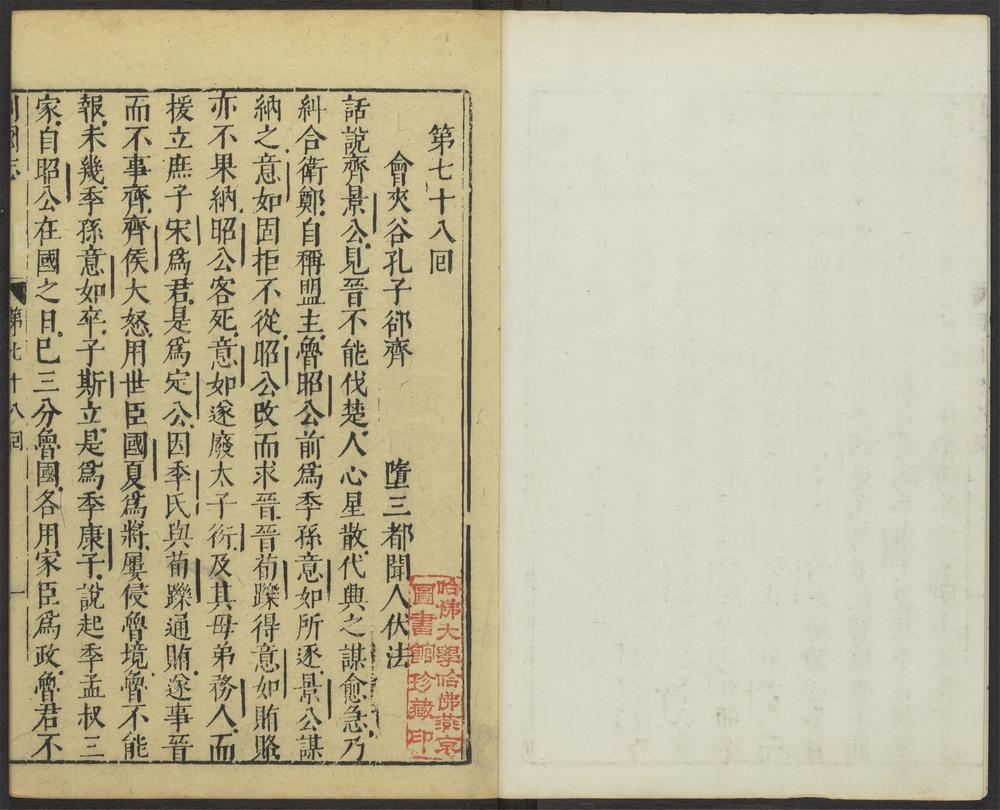 第七十八回
會夾谷孔子郤齊　墮三都聞人伏法
話說齊景公見晉不能伐楚人心星散代興之謀愈急乃
糾合衛鄭自稱盟主魯昭公前爲季孫意如所逐景公謀
納之意如固拒不從昭公改而求晉晉荀躒得意如賄賂
亦不果納昭公客死意如遂廢太子衍及其母弟務人而
援立庶子宋爲君是爲定公因季氏與荀躒通賄遂事晉
而不事齊齊侯大怒用世臣國夏爲將屢侵魯境魯不能
報未幾季孫意如卒子斯立是爲季康子說起季孟叔三
家自昭公在國之日已三分魯國各用家臣爲政魯君不
列國志　第七十八回　一
哈佛大學哈佛燕京
圖書館珍藏印